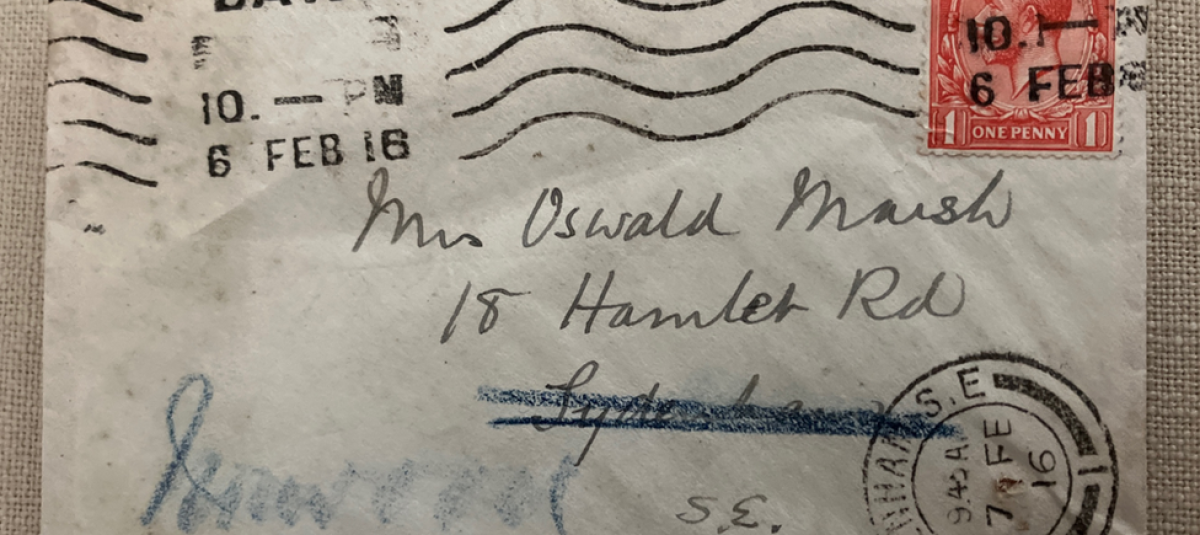 10. — PM
6 FEB 16
10. — 
6 FEB
1 ONE PENNY 1
Mrs Oswald Marsh
18 Hamlet Rd
Sydenham
Norwood
S.E.
S.E
9.45 A
7 FE
16